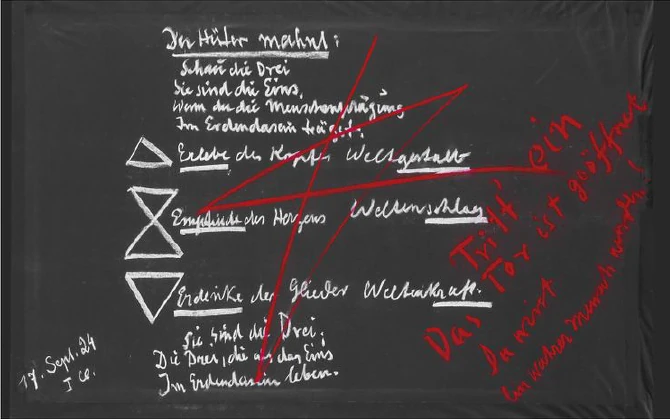 Der Hüter mahnt:
Schau die Drei
Sie sind die Eins,
Wenn du die Menschenprägung
Im Erdendasein trägst.
Erlebe des Kopfes Weltgestalt
Empfinde des Herzens Weltenschlag
Erdenke der Glieder Weltenkraft.
Sie sind die Drei,
Die Drei, die als das Eins
Im Erdendasein leben.
17. Sept. 24
Tritt ein
Das Tor ist geöffnet
Du wirst
Ein wahrer Mensch werden!